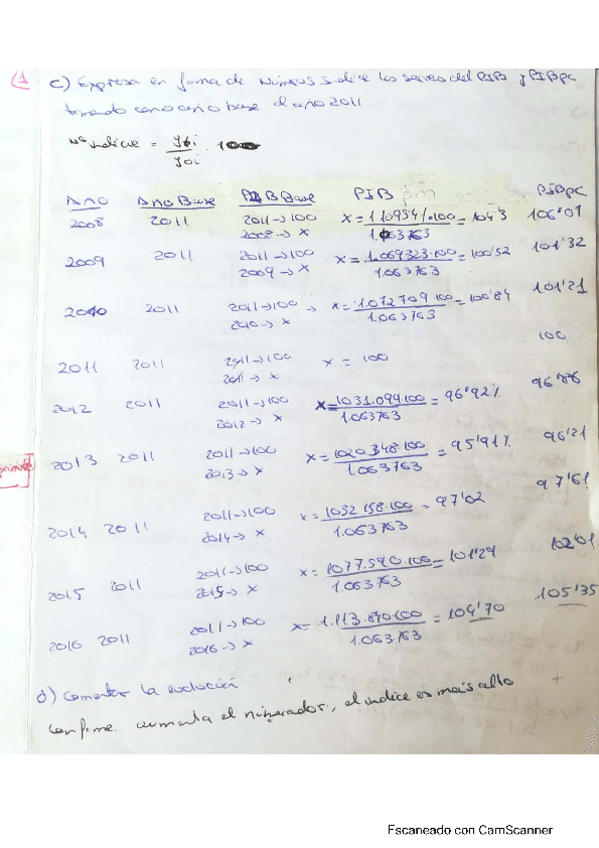 c) Expresa en forma de números índice las series del PIB y PIBpc
tomando como año base el año 2011
nº indice = Yti / Yoi · 100
Año Año Base PIB Base PIB pm PIBpc
2008 2011 2011→100 2008→x x = 1.109341.100 / 1.063763 = 104'3 106'07
2009 2011 2011→100 2009→x x = 1.069323.100 / 1.063763 = 100'52 101'32
2010 2011 2011→100 2010→x x = 1.072709.100 / 1.063763 = 100'84 101'21
2011 2011 2011→100 2011→x x = 100 100
2012 2011 2011→100 2012→x x = 1031.099.100 / 1.063763 = 96'92% 96'86
2013 2011 2011→100 2013→x x = 1020.348.100 / 1.063763 = 95'91% 96'21
2014 2011 2011→100 2014→x x = 1032.158.100 / 1.063763 = 97'02 97'61
2015 2011 2011→100 2015→x x = 1077.590.100 / 1.063763 = 101'29 102'01
2016 2011 2011→100 2016→x x = 1.113.840.100 / 1.063763 = 104'70 105'35
d) Comentar la evolución
conforme aumenta el numerador, el indice es mas alto
Escaneado con CamScanner